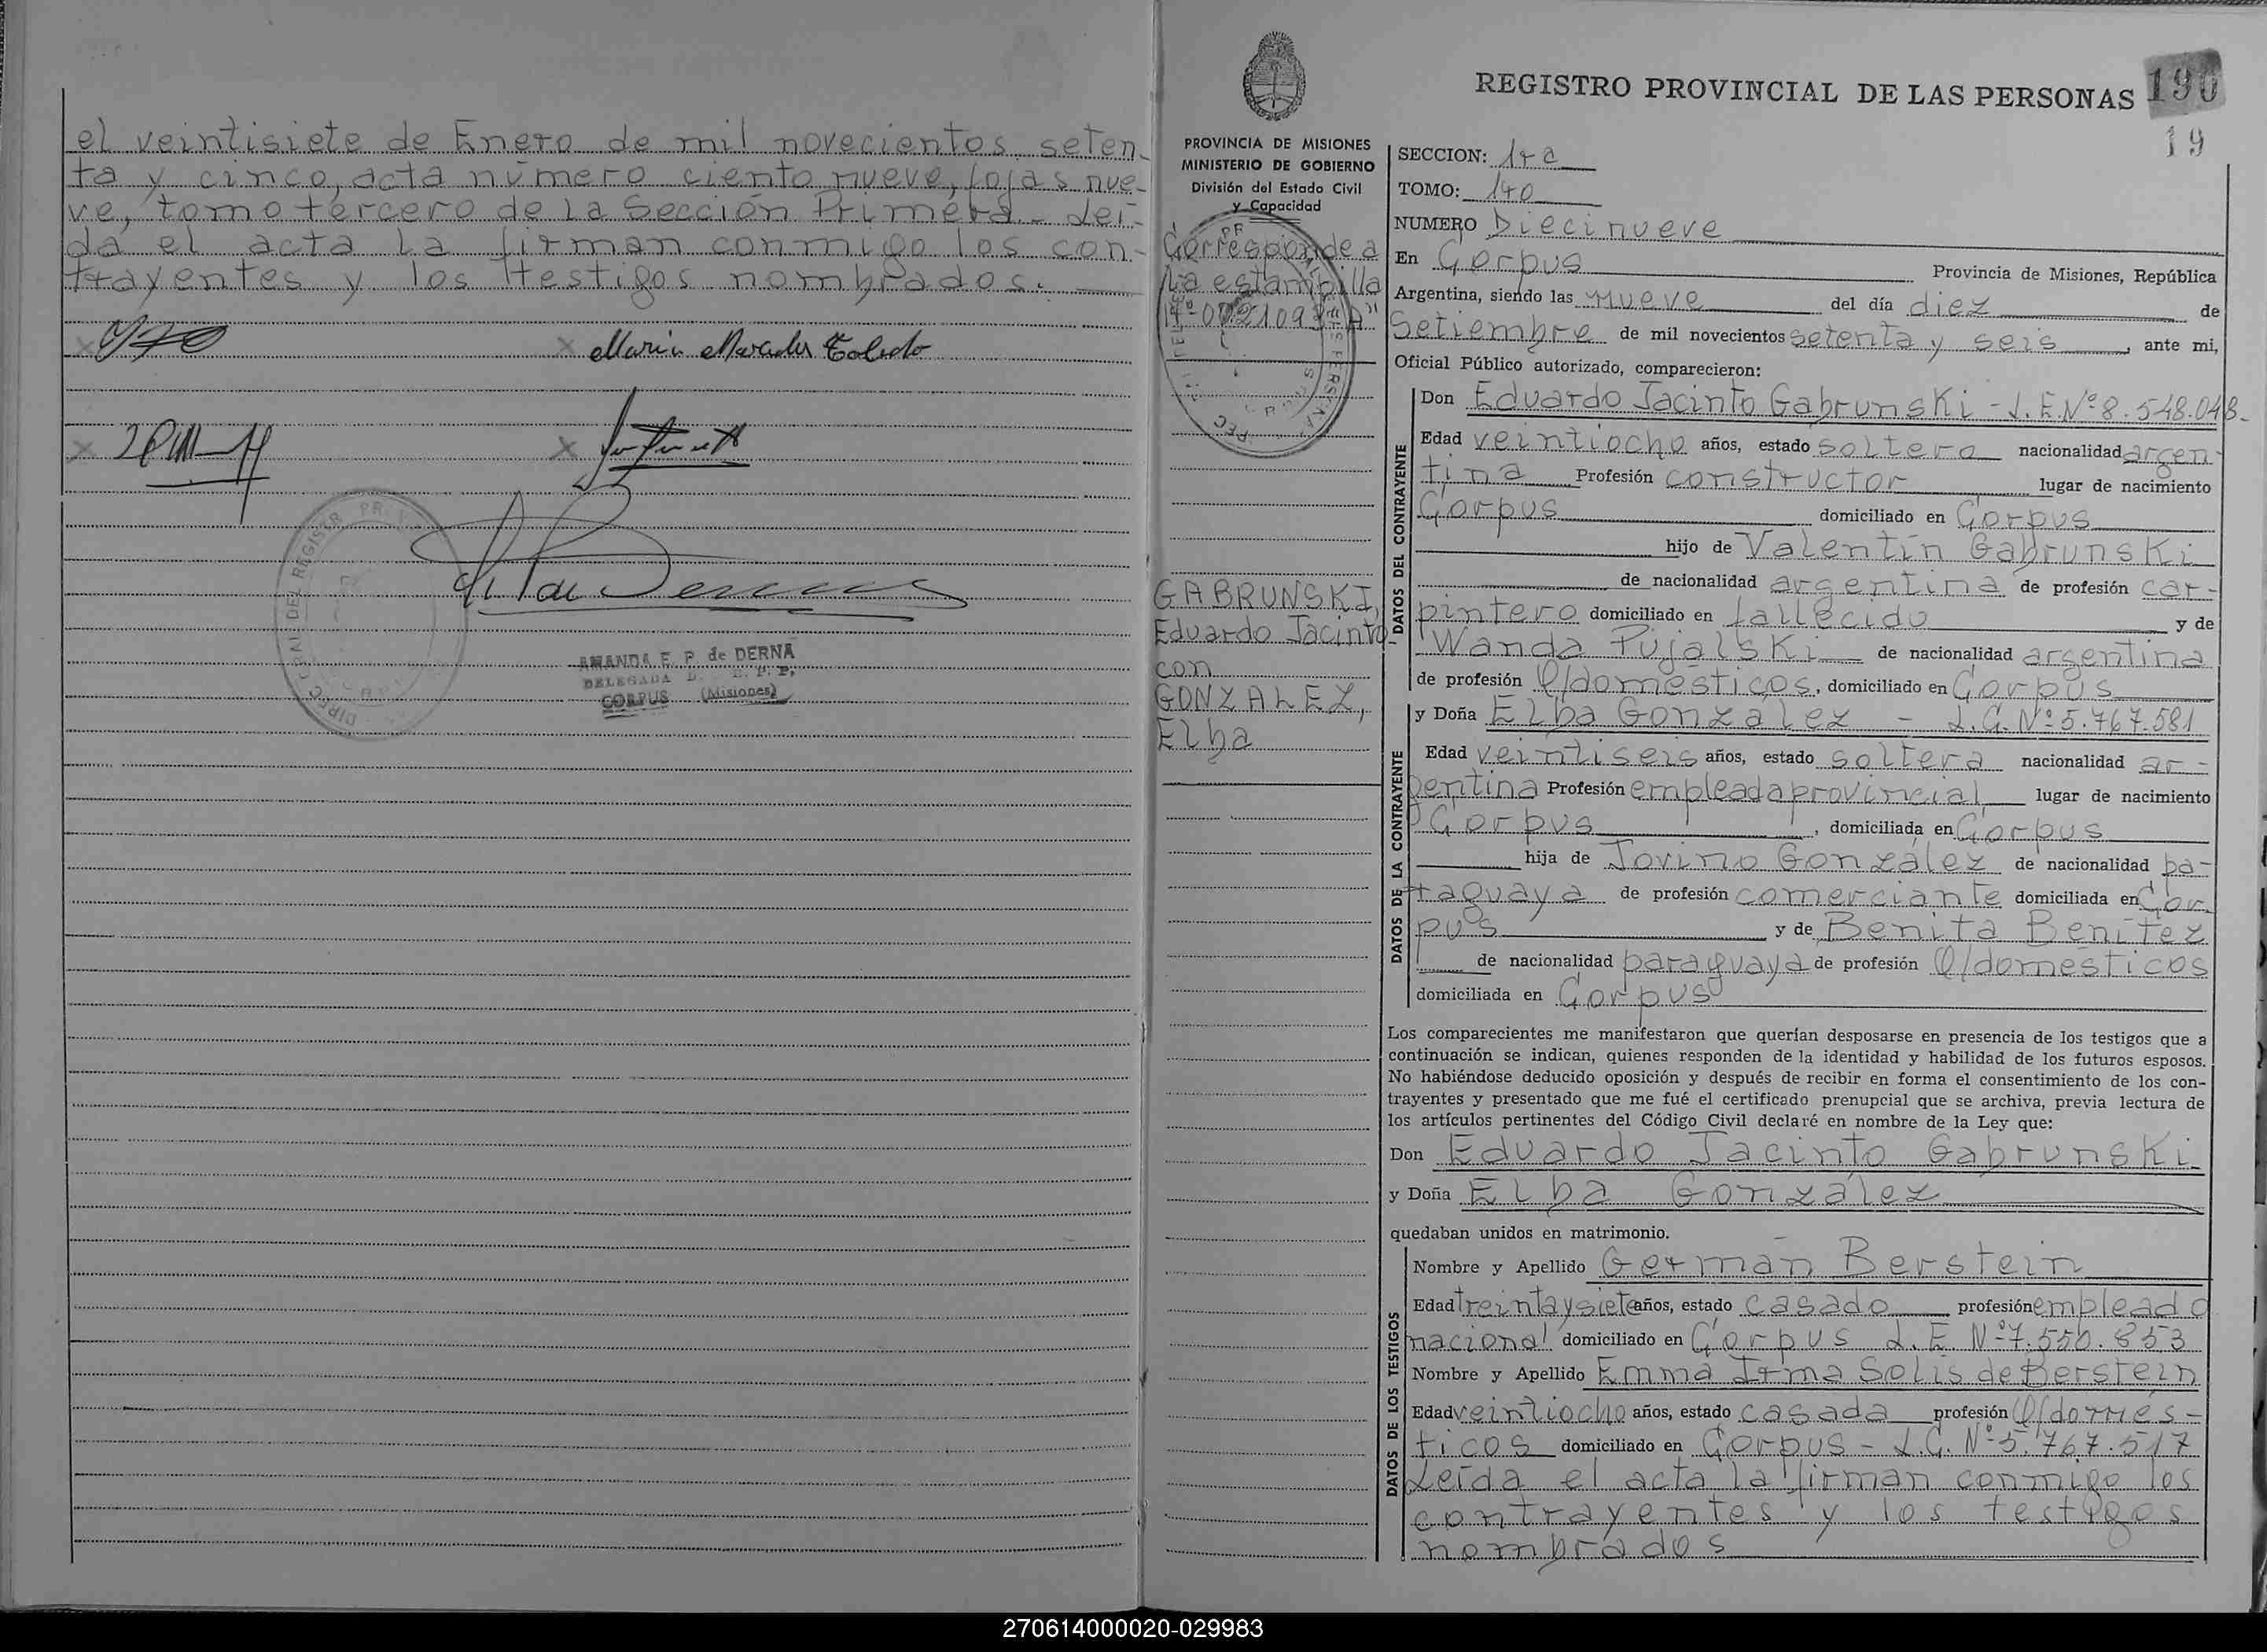 el veintisiete de Enero de mil novecientos seten-
ta y cinco, acta número ciento nueve, fojas nue-
ve, tomo tercero de la Sección Primera.- Leí-
da el acta la firman conmigo los con-
trayentes y los testigos nombrados.
Maria Mercedes Toledo
AMANDA E. P. de DERNA
DELEGADA
CORPUS (Misiones)
PROVINCIA DE MISIONES
MINISTERIO DE GOBIERNO
División del Estado Civil
y Capacidad
Corresponde a
la estampilla
GABRUNSKI,
Eduardo Jacinto
con
GONZALEZ,
Elba
REGISTRO PROVINCIAL DE LAS PERSONAS 190
19
SECCION: 1ra
TOMO: 1ro
NUMERO Diecinueve
En Corpus Provincia de Misiones, República
Argentina, siendo las nueve del día diez de
Setiembre de mil novecientos setenta y seis, ante mi,
Oficial Público autorizado, comparecieron:
DATOS DEL CONTRAYENTE
Don Eduardo Jacinto Gabrunski - L.E.Nº 8.548.048-
Edad veintiocho años, estado soltero nacionalidad argen-
tina Profesión constructor lugar de nacimiento
Corpus domiciliado en Corpus
hijo de Valentín Gabrunski
de nacionalidad argentina de profesión car-
pintero domiciliado en fallecido y de
Wanda Pujalski de nacionalidad argentina
de profesión Q/domésticos, domiciliado en Corpus
DATOS DE LA CONTRAYENTE
y Doña Elba Gonzalez - L.C. Nº 5.767.581
Edad veintiseis años, estado soltera nacionalidad ar-
gentina Profesión empleada provincial lugar de nacimiento
Corpus, domiciliada en Corpus
hija de Jovino González de nacionalidad pa-
raguaya de profesión comerciante domiciliada en Cor-
pus y de Benita Benítez
de nacionalidad paraguaya de profesión Q/domésticos
domiciliada en Corpus
Los comparecientes me manifestaron que querían desposarse en presencia de los testigos que a
continuación se indican, quienes responden de la identidad y habilidad de los futuros esposos.
No habiéndose deducido oposición y después de recibir en forma el consentimiento de los con-
trayentes y presentado que me fué el certificado prenupcial que se archiva, previa lectura de
los artículos pertinentes del Código Civil declaré en nombre de la Ley que:
Don Eduardo Jacinto Gabrunski
y Doña Elba González
quedaban unidos en matrimonio.
DATOS DE LOS TESTIGOS
Nombre y Apellido Germán Berstein
Edad treinta y siete años, estado casado profesión empleado
nacional domiciliado en Corpus L.E. Nº 7.550.853
Nombre y Apellido Emma Irma Solis de Berstein
Edad veintiocho años, estado casada profesión Q/domés-
ticos domiciliado en Corpus - L.C. Nº 5.767.517
Leída el acta la firman conmigo los
contrayentes y los testigos
nombrados
270614000020-029983